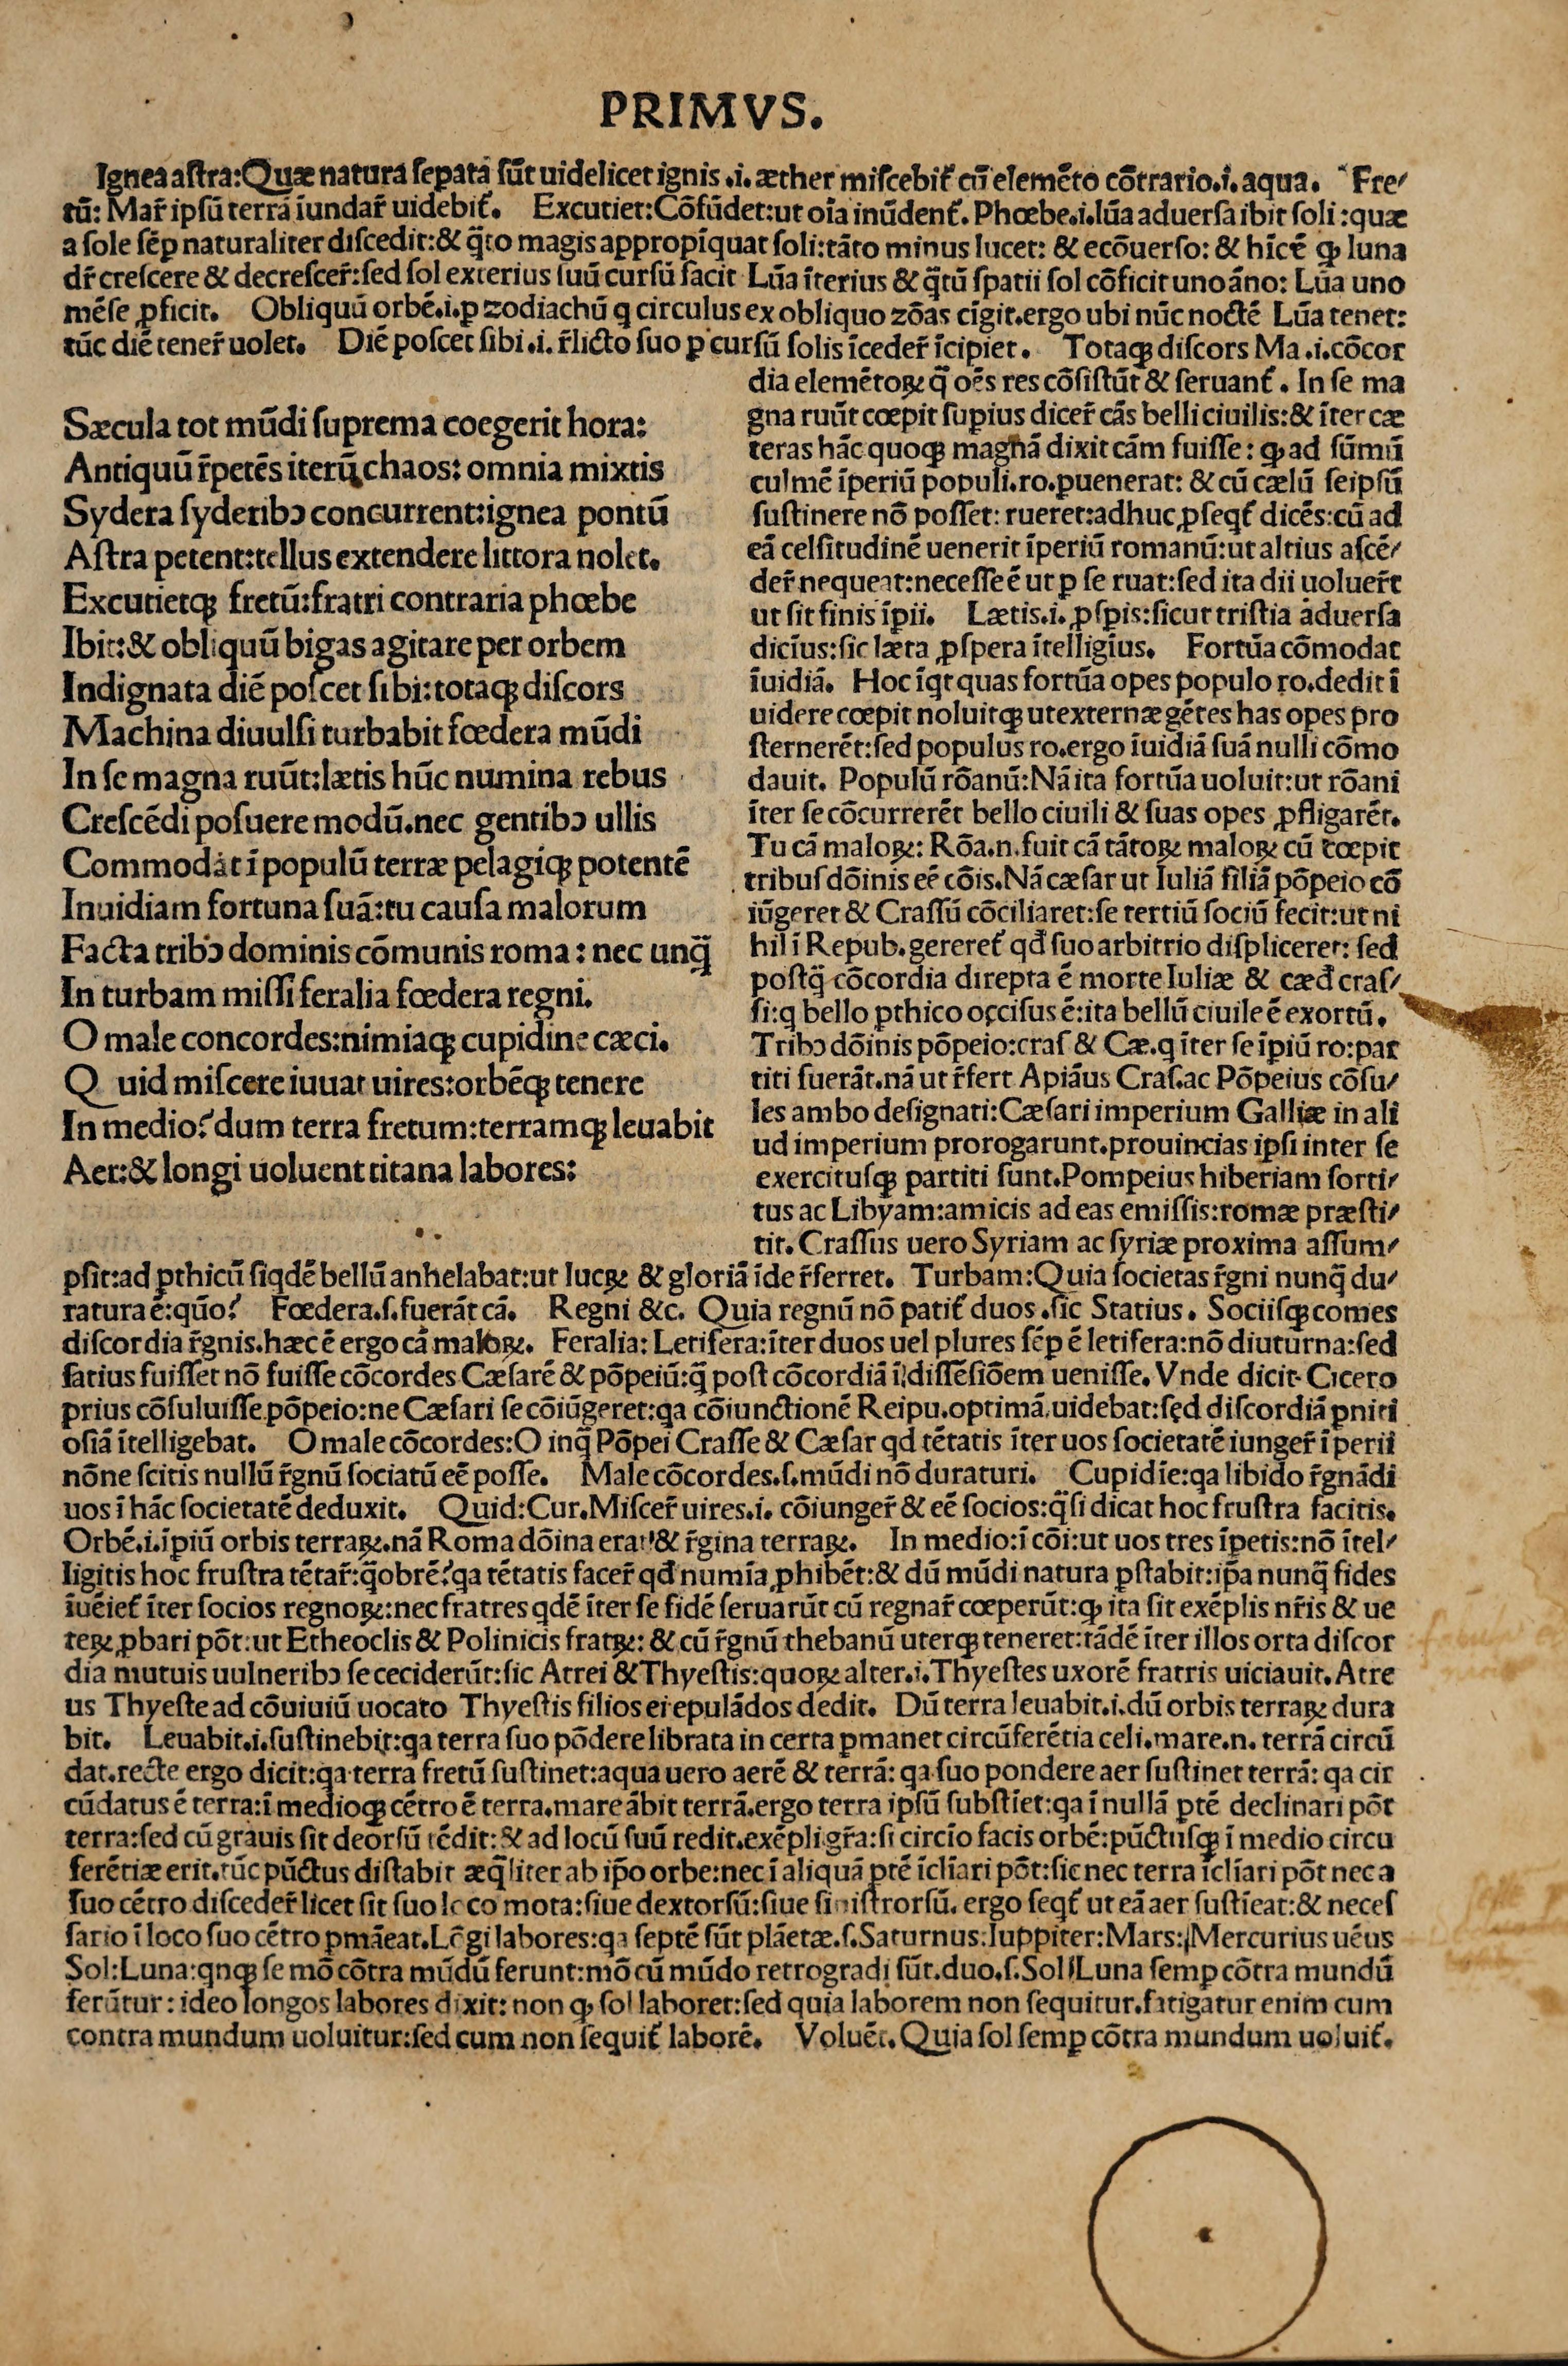 PRIMVS.
Ignea aſtra:Quæ natura ſepata ſūt uidelicet ignis .i. æther miſcebit᷑ cū elemēto cōtrario.i. aqua. Fre⸗
tū: Mar̄ ipſū terrā īundar̄ uidebit᷑. Excutiet:Cōfūdet:ut oīa inūdent᷑. Phœbe.i.lūa aduerſa ibit ſoli :quæ
a ſole ſēꝑ naturaliter diſcedit:& q̄to magis appropīquat ſoli:tāto minus lucet: & ecōuerſo: & hīc ē ꝙ luna
dr̄ creſcere & decreſcer̄:ſed ſol exterius ſuū curſū facit Lūa īterius & q̄tū ſpatii ſol cōficit uno āno: Lūa uno
mēſe ꝓficit. Obliquū orbē.i.ꝑ zodiachū q circulus ex obliquo zōas cīgit.ergo ubi nūc noctē Lūa tenet:
tūc diē tener̄ uolet. Diē poſcet ſibi .i. r̄licto ſuo ꝑ curſū ſolis īceder̄ īcipiet. Totaqꝫ diſcors Ma .i.cōcor
dia elemētoꝝ q̄ oēs res cōſiſtūt & ſeruant᷑. In ſe ma
gna ruūt cœpit ſupius dicer̄ cās belli ciuilis:& īter cæ
teras hāc quoqꝫ magnā dixit cām fuiſſe: ꝙ ad ſūmū
culmē īperiū populi.ro.puenerat: & cū cælū ſeipſū
ſuſtinere nō poſſet: rueret:adhuc ꝓſeqt᷑ dicēs:cū ad
eā celſitudinē uenerit īperiū romanū:ut altius aſcē⸗
der̄ nequeat:neceſſe ē ut ꝑ ſe ruat:ſed ita dii uoluer̄t
ut ſit finis īpii. Lætis.i.ꝓſpis:ſicut triſtia aduerſa
dicīus:ſic læta ꝓſpera ītelligīus. Fortūa cōmodat
īuidiā. Hoc īqt quas fortūa opes populo ro.dedit ī
uidere cœpit noluitqꝫ ut externæ gētes has opes pro
ſternerēt:ſed populus ro.ergo īuidiā ſuā nulli cōmo
dauit. Populū rōanū:Nā ita fortūa uoluit:ut rōani
īter ſe cōcurrerēt bello ciuili & ſuas opes ꝓfligarēt.
Tu cā maloꝝ: Rōa.n.fuit cā tātoꝝ maloꝝ cū cœpit
tribuſ dōinis eē cōis.Nā cæſar ut Iuliā filiā pōpeio cō
iūgeret & Craſſū cōciliaret:ſe tertiū ſociū fecit:ut ni
hil ī Repub.gereret᷑ qd̄ ſuo arbitrio diſpliceret: ſed
poſtq̄ cōcordia direpta ē morte Iuliæ & cæd̄ craſ⸗
ſi:q bello ꝑthico occiſus ē:ita bellū ciuile ē exortū.
Tribↄ dōinis pōpeio:craſ & Cæ.q īter ſe īpiū ro:par
titi fuerāt.nā ut r̄fert Apiāus Craſ.ac Pōpeius cōſu⸗
les ambo deſignati:Cæſari imperium Galliæ in ali
ud imperium prorogarunt.prouincias ipſi inter ſe
exercituſqꝫ partiti ſunt.Pompeius hiberiam ſorti⸗
tus ac Libyam:amicis ad eas emiſſis:romæ præſti⸗
tit. Craſſus uero Syriam ac ſyriæ proxima aſſum⸗
Sæcula tot mūdi ſuprema coegerit hora:
Antiquū r̄petēs iterū chaos: omnia mixtis
Sydera ſyderibↄ concurrent:ignea pontū
Aſtra petent:tellus extendere littora nolet.
Excutietqꝫ fretū:fratri contraria phœbe
Ibit:& obliquū bigas agitare per orbem
Indignata diē poſcet ſibi:totaqꝫ diſcors
Machina diuulſi turbabit fœdera mūdi
In ſe magna ruūt:lætis hūc numina rebus
Creſcēdi poſuere modū.nec gentibↄ ullis
Commodat ī populū terræ pelagiqꝫ potentē
Inuidiam fortuna ſuā:tu cauſa malorum
Facta tribↄ dominis cōmunis roma : nec unq̄
In turbam miſſi feralia fœdera regni.
O male concordes:nimiaqꝫ cupidine cæci.
Q uid miſcere iuuat uires:orbēqꝫ tenere
In medio? dum terra fretum:terramqꝫ leuabit
Aer:& longi uoluent titana labores:
pſit:ad ꝑthicū ſiqdē bellū anhelabat:ut lucꝝ & gloriā īde r̄ferret. Turbam:Quia ſocietas r̄gni nunq̄ du⸗
ratura ē:quō? Fœdera.ſ.fuerāt cā. Regni &c. Quia regnū nō patit᷑ duos .ſic Statius. Sociiſqꝫ comes
diſcordia r̄gnis.hæc ē ergo cā maloꝝ. Feralia: Letifera:īter duos uel plures ſēꝑ ē letifera:nō diuturna:ſed
ſatius fuiſſet nō fuiſſe cōcordes Cæſarē & pōpeiū:q̄ poſt cōcordiā ī diſſēſiōem ueniſſe. Vnde dicit Cicero
prius cōſuluiſſe pōpeio:ne Cæſari ſe cōiūgeret:qa cōiunctionē Reipu.optimā uidebat:ſed diſcordiā pniti
oſiā ītelligebat. O male cōcordes:O inq̄ Pōpei Craſſe & Cæſar qd tētatis īter uos ſocietatē iunger̄ īperii
nōne ſcitis nullū r̄gnū ſociatū eē poſſe. Male cōcordes.ſ.mūdi nō duraturi. Cupidīe:qa libido r̄gnādi
uos ī hāc ſocietatē deduxit. Quid:Cur.Miſcer̄ uires.i. cōiunger̄ & eē ſocios:q̄ſi dicat hoc fruſtra facitis.
Orbē.i.īpiū orbis terraꝝ.nā Roma dōina erat & r̄gina terraꝝ. In medio:ī cōi:ut uos tres īpetis:nō ītel⸗
ligitis hoc fruſtra tētar̄:q̄obrē?qa tētatis facer̄ qd̄ numīa ꝓhibēt:& dū mūdi natura pſtabit:ip̄a nunq̄ fides
īuēiet᷑ īter ſocios regnoꝝ:nec fratres qdē īter ſe fidē ſeruarūt cū regnar̄ cœperūt:ꝙ ita ſit exēplis nr̄is & ue
teꝝ ꝓbari pōt:ut Etheoclis & Polinicis fratꝝ: & cū r̄gnū thebanū uterqꝫ teneret:tādē īter illos orta diſcor
dia mutuis uulneribↄ ſe ceciderūt:ſic Atrei & Thyeſtis:quoꝝ alter.i.Thyeſtes uxorē fratris uiciauit.Atre
us Thyeſte ad cōuiuiū uocato Thyeſtis filios ei epulādos dedit. Dū terra leuabit.i.dū orbis terraꝝ dura
bit. Leuabit.i.ſuſtinebit:qa terra ſuo pōdere librata in certa pmanet circūferētia celi.mare.n. terrā circū
dat.recte ergo dicit:qa terra fretū ſuſtinet:aqua uero aerē & terrā: qa ſuo pondere aer ſuſtinet terrā: qa cir
cūdatus ē terra:ī medioqꝫ cētro ē terra.mare ābit terrā.ergo terra ipſū ſubſtīet:qa ī nullā ptē declinari pōt
terra:ſed cū grauis ſit deorſū tēdit:& ad locū ſuū redit.exēpli gr̄a:ſi circīo facis orbē:pūctuſqꝫ ī medio circu
ferētiæ erit.tūc pūctus diſtabit æq̄liter ab ip̄o orbe:nec ī aliquā ptē īclīari pōt:ſic nec terra īclīari pōt nec a
ſuo cētro diſceder̄ licet ſit ſuo loco mota:ſiue dextorſū:ſiue ſiniſtrorſū. ergo ſeqt᷑ ut eā aer ſuſtīeat:& neceſ
ſario ī loco ſuo cētro pmāeat.Lōgi labores:qa ſeptē ſūt plāetæ.ſ.Saturnus:Iuppiter:Mars:Mercurius uēus
Sol:Luna:qnqꝫ ſe mō cōtra mūdū ferunt:mō cū mūdo retrogradi ſūt.duo.ſ.Sol Luna ſemꝑ cōtra mundū
ferūtur: ideo longos labores dixit: non ꝙ ſol laboret:ſed quia laborem non ſequitur.fatigatur enim cum
contra mundum uoluitur:ſed cum non ſequit᷑ laborē. Voluēt.Quia ſol ſemꝑ cōtra mundum uoluit᷑.